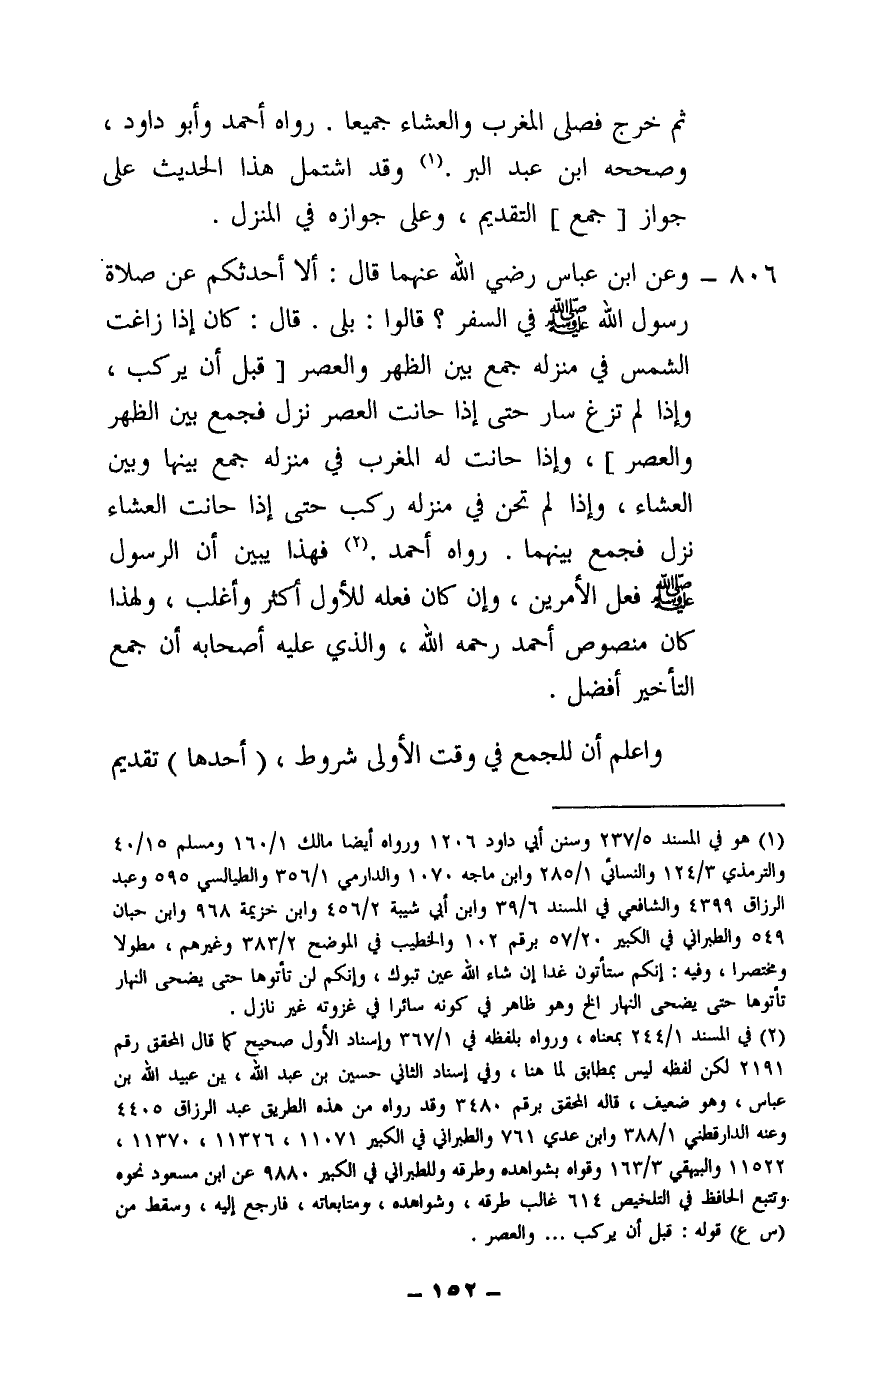 ثم خرج فصلى المغرب والعشاء جميعا . رواه أحمد وأبو داود ،
وصححه ابن عبد البر .(١) وقد اشتمل هذا الحديث على
جواز [ جمع ] التقديم ، وعلى جوازه في المنزل .
٨٠٦ – وعن ابن عباس رضي الله عنهما قال : ألا أحدثكم عن صلاة
رسول الله ﷺ في السفر ؟ قالوا : بلى . قال : كان إذا زاغت
الشمس في منزله جمع بين الظهر والعصر [ قبل أن يركب ،
وإذا لم تزغ سار حتى إذا حانت العصر نزل فجمع بين الظهر
والعصر ] ، وإذا حانت له المغرب في منزله جمع بينها وبين
العشاء ، وإذا لم تحن في منزله ركب حتى إذا حانت العشاء
نزل فجمع بينهما . رواه أحمد .(٢) فهذا يبين أن الرسول
ﷺ فعل الأمرين ، وإن كان فعله للأول أكثر وأغلب ، ولهذا
كان منصوص أحمد رحمه الله ، والذي عليه أصحابه أن جمع
التأخير أفضل .
واعلم أن للجمع في وقت الأولى شروط ، ( أحدها ) تقديم
(١) هو في المسند ٢٣٧/٥ وسنن أبي داود ١٢٠٦ ورواه أيضا مالك ١٦٠/١ ومسلم ٤٠/١٥
والترمذي ١٢٤/٣ والنسائي ٢٨٥/١ وابن ماجه ١٠٧٠ والدارمي ٣٥٦/١ والطيالسي ٥٩٥ وعبد
الرزاق ٤٣٩٩ والشافعي في المسند ٣٩/٦ وابن أبي شيبة ٤٥٦/٢ وابن خزيمة ٩٦٨ وابن حبان
٥٤٩ والطبراني في الكبير ٥٧/٢٠ برقم ١٠٢ والخطيب في الموضح ٣٨٣/٢ وغيرهم ، مطولا
ومختصرا ، وفيه : إنكم ستأتون غدا إن شاء الله عين تبوك ، وإنكم لن تأتوها حتى يضحى النهار
تأتوها حتى يضحى النهار الخ وهو ظاهر في كونه سائرا في غزوته غير نازل .
(٢) في المسند ٢٤٤/١ بمعناه ، ورواه بلفظه في ٣٦٧/١ وإسناد الأول صحيح كما قال المحقق رقم
٢١٩١ لكن لفظه ليس بمطابق لما هنا ، وفي إسناد الثاني حسين بن عبد الله ، بن عبيد الله بن
عباس ، وهو ضعيف ، قاله المحقق برقم ٣٤٨٠ وقد رواه من هذه الطريق عبد الرزاق ٤٤٠٥
وعنه الدارقطني ٣٨٨/١ وابن عدي ٧٦١ والطبراني في الكبير ١١٠٧١ ، ١١٣٢٦ ، ١١٣٧٠ ،
١١٥٢٢ والبيهقي ١٦٣/٣ وقواه بشواهده وطرقه وللطبراني في الكبير ٩٨٨٠ عن ابن مسعود نحوه
وتتبع الحافظ في التلخيص ٦١٤ غالب طرقه ، وشواهده ، ومتابعاته ، فارجع إليه ، وسقط من
(س ع) قوله : قبل أن يركب ... والعصر .
– ١٥٢ –